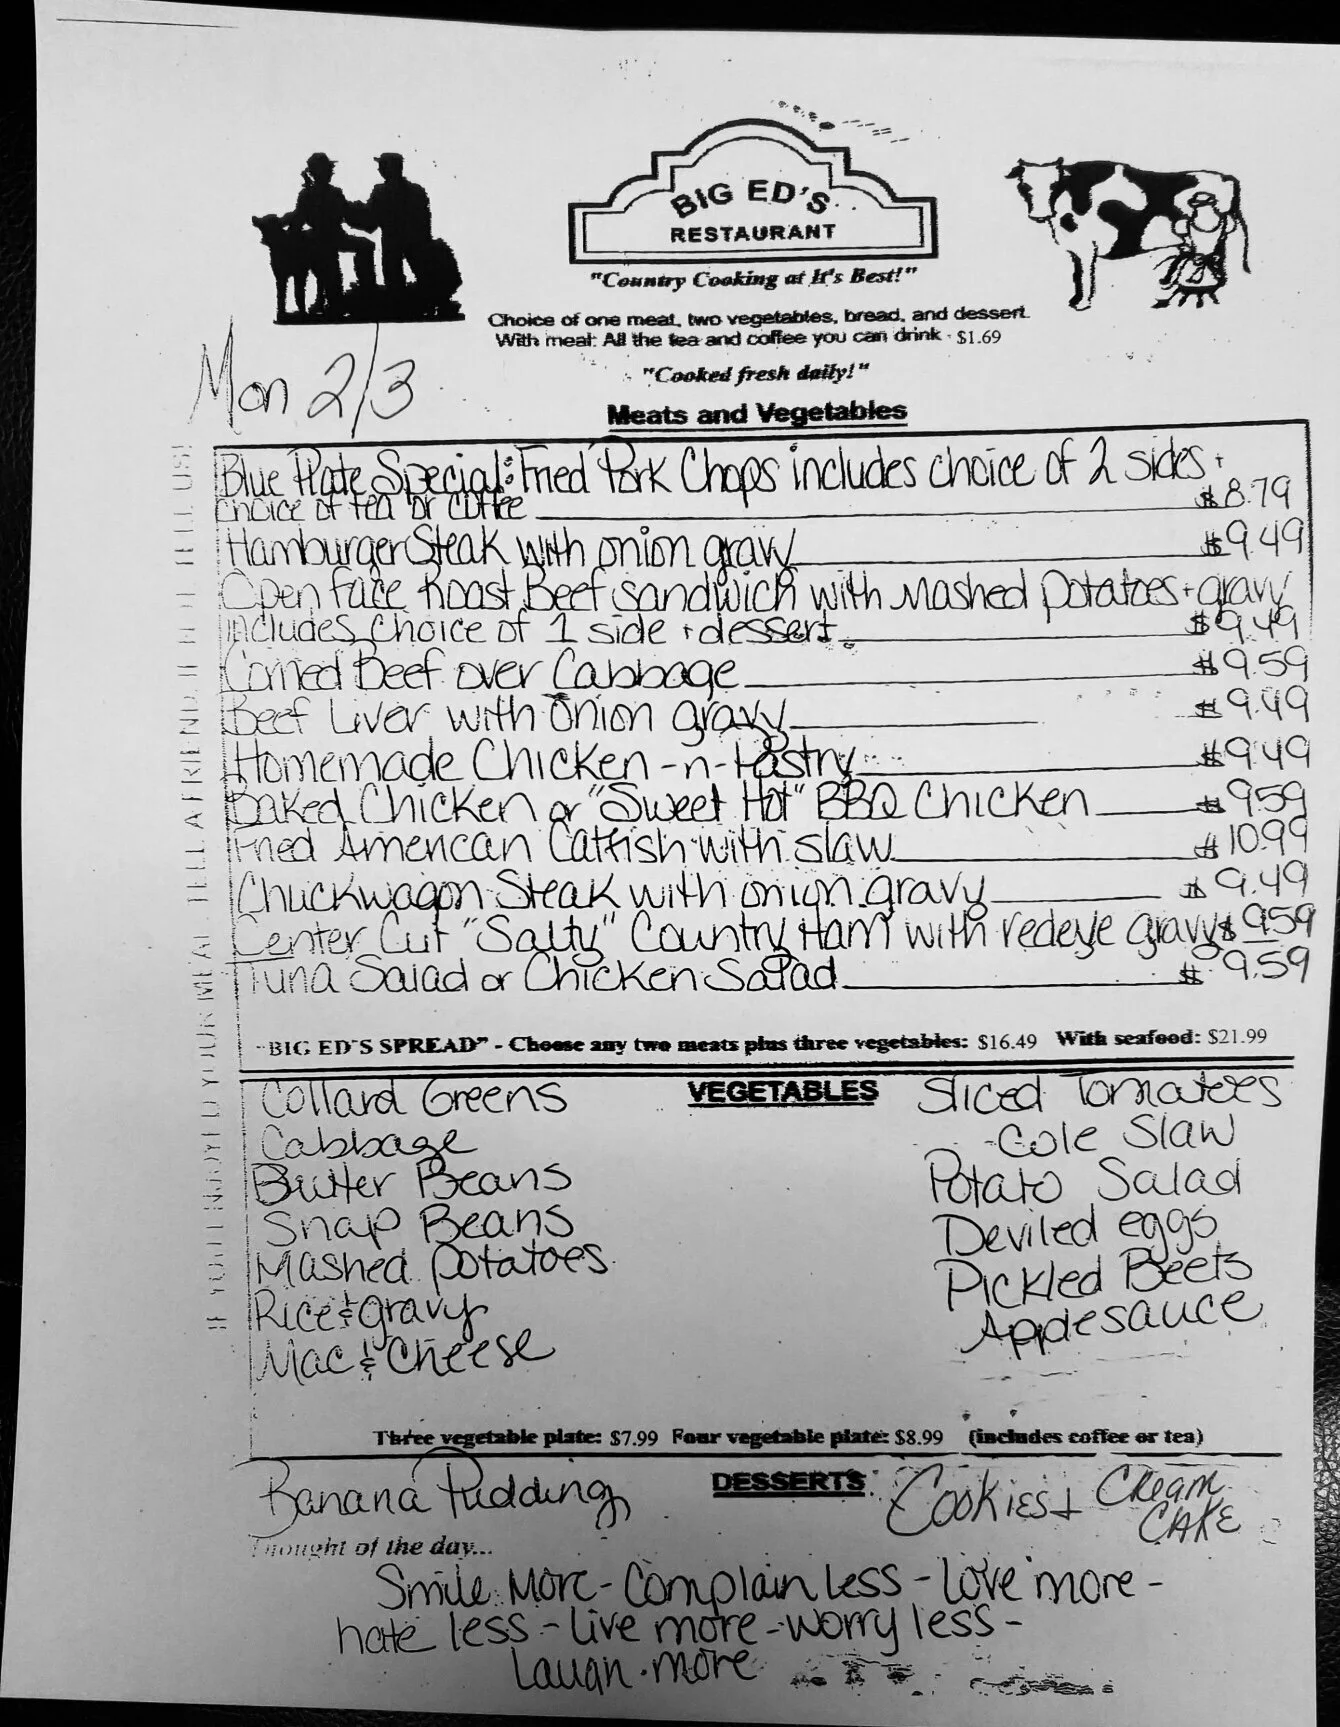 BIG ED'S
RESTAURANT
"Country Cooking at It's Best!"
Choice of one meat, two vegetables, bread, and dessert.
With meal: All the tea and coffee you can drink - $1.69
"Cooked fresh daily!"
Mon 2/3
Meats and Vegetables
Blue Plate Special: Fried Pork Chops includes choice of 2 sides +
choice of tea or coffee $8.79
Hamburger Steak with onion gravy $9.49
Open face Roast Beef sandwich with Mashed potatoes + gravy
includes choice of 1 side + dessert $9.49
Corned Beef over Cabbage $9.59
Beef Liver with Onion gravy $9.49
Homemade Chicken-n-Pastry $9.49
Baked Chicken or "Sweet Hot" BBQ Chicken $9.59
Fried American Catfish with slaw $10.99
Chuckwagon Steak with onion gravy $9.49
Center Cut "Salty" Country Ham with redeye gravy $9.59
Tuna Salad or Chicken Salad $9.59
"BIG ED'S SPREAD" - Choose any two meats plus three vegetables: $16.49 With seafood: $21.99
VEGETABLES
Collard Greens
Cabbage
Butter Beans
Snap Beans
Mashed potatoes
Rice & gravy
Mac & Cheese
Sliced Tomatoes
Cole Slaw
Potato Salad
Deviled eggs
Pickled Beets
Applesauce
Three vegetable plate: $7.99 Four vegetable plate: $8.99 (includes coffee or tea)
DESSERTS:
Banana Pudding
Cookies + Cream
CAKE
Thought of the day...
Smile More - Complain Less - Love more -
hate less - live more - worry less -
Laugh more
IF YOU ENJOYED YOUR MEAL TELL A FRIEND, IF NOT TELL US!